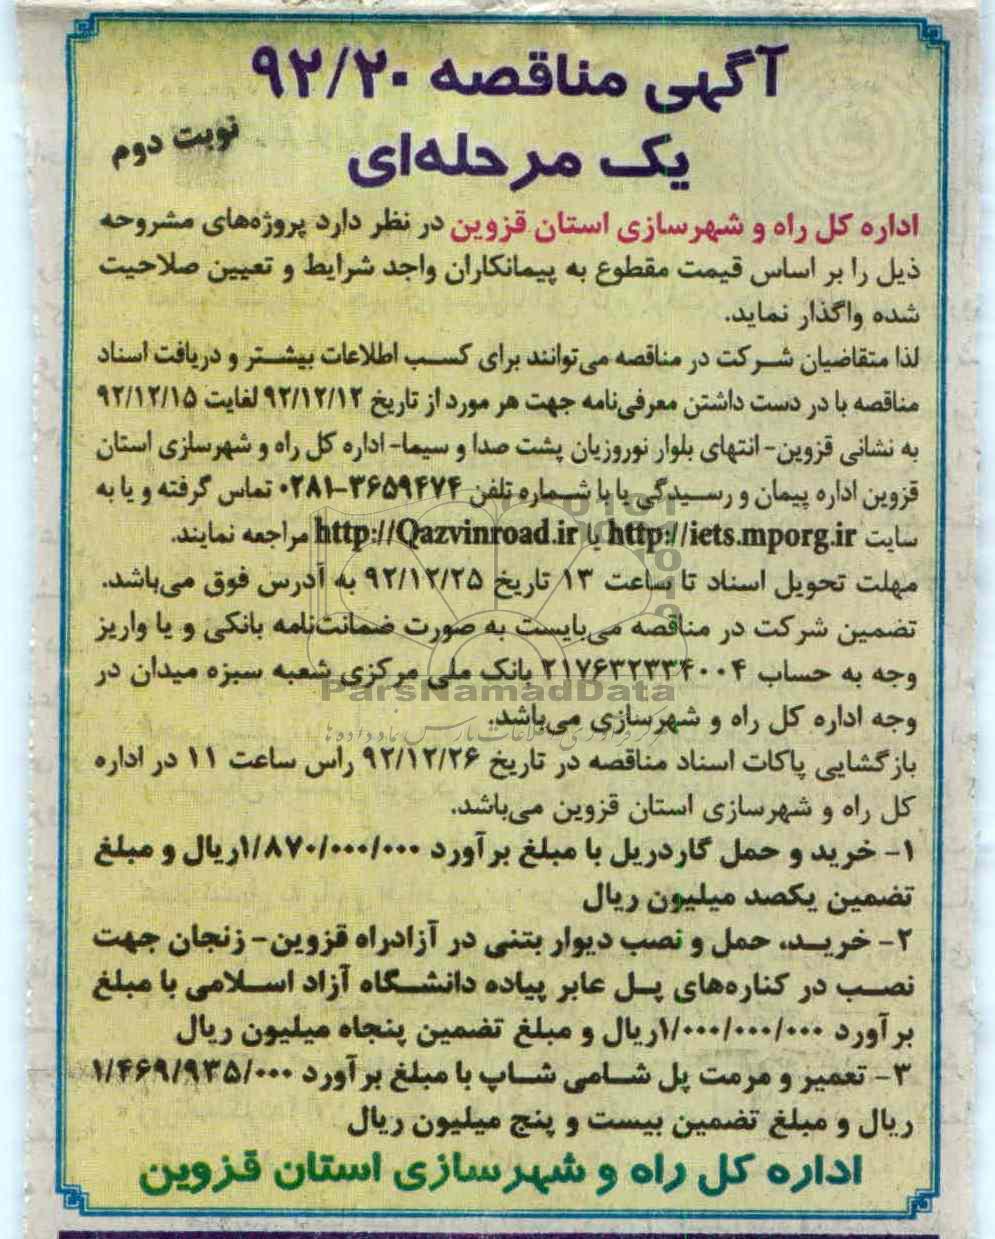 آگهی مناقصه ۹۲/۲۰
یک مرحله‌ای
نوبت دوم
اداره کل راه و شهرسازی استان قزوین در نظر دارد پروژه‌های مشروحه
ذیل را بر اساس قیمت مقطوع به پیمانکاران واجد شرایط و تعیین صلاحیت
شده واگذار نماید.
لذا متقاضیان شرکت در مناقصه می‌توانند برای کسب اطلاعات بیشتر و دریافت اسناد
مناقصه با در دست داشتن معرفی‌نامه جهت هر مورد از تاریخ ۹۲/۱۲/۱۲ لغایت ۹۲/۱۲/۱۵
به نشانی قزوین- انتهای بلوار نوروزیان پشت صدا و سیما- اداره کل راه و شهرسازی استان
قزوین اداره پیمان و رسیدگی یا با شماره تلفن ۳۶۵۹۴۷۴-۰۲۸۱ تماس گرفته و یا به
سایت http://iets.mporg.ir یا http://Qazvinroad.ir مراجعه نمایند.
مهلت تحویل اسناد تا ساعت ۱۳ تاریخ ۹۲/۱۲/۲۵ به آدرس فوق می‌باشد.
تضمین شرکت در مناقصه می‌بایست به صورت ضمانت‌نامه بانکی و یا واریز
وجه به حساب ۲۱۷۶۳۲۲۳۴۰۰۴ بانک ملی مرکزی شعبه سبزه میدان در
ParsNamadData
وجه اداره کل راه و شهرسازی می‌باشد.
بازگشایی پاکات اسناد مناقصه در تاریخ ۹۲/۱۲/۲۶ راس ساعت ۱۱ در اداره
کل راه و شهرسازی استان قزوین می‌باشد.
۱- خرید و حمل گاردریل با مبلغ برآورد ۱/۸۷۰/۰۰۰/۰۰۰ریال و مبلغ
تضمین یکصد میلیون ریال
۲- خرید، حمل و نصب دیوار بتنی در آزادراه قزوین- زنجان جهت
نصب در کناره‌های پل عابر پیاده دانشگاه آزاد اسلامی با مبلغ
برآورد ۱/۰۰۰/۰۰۰/۰۰۰ریال و مبلغ تضمین پنجاه میلیون ریال
۳- تعمیر و مرمت پل شامی شاپ با مبلغ برآورد ۱/۴۶۹/۹۳۵/۰۰۰
ریال و مبلغ تضمین بیست و پنج میلیون ریال
اداره کل راه و شهرسازی استان قزوین